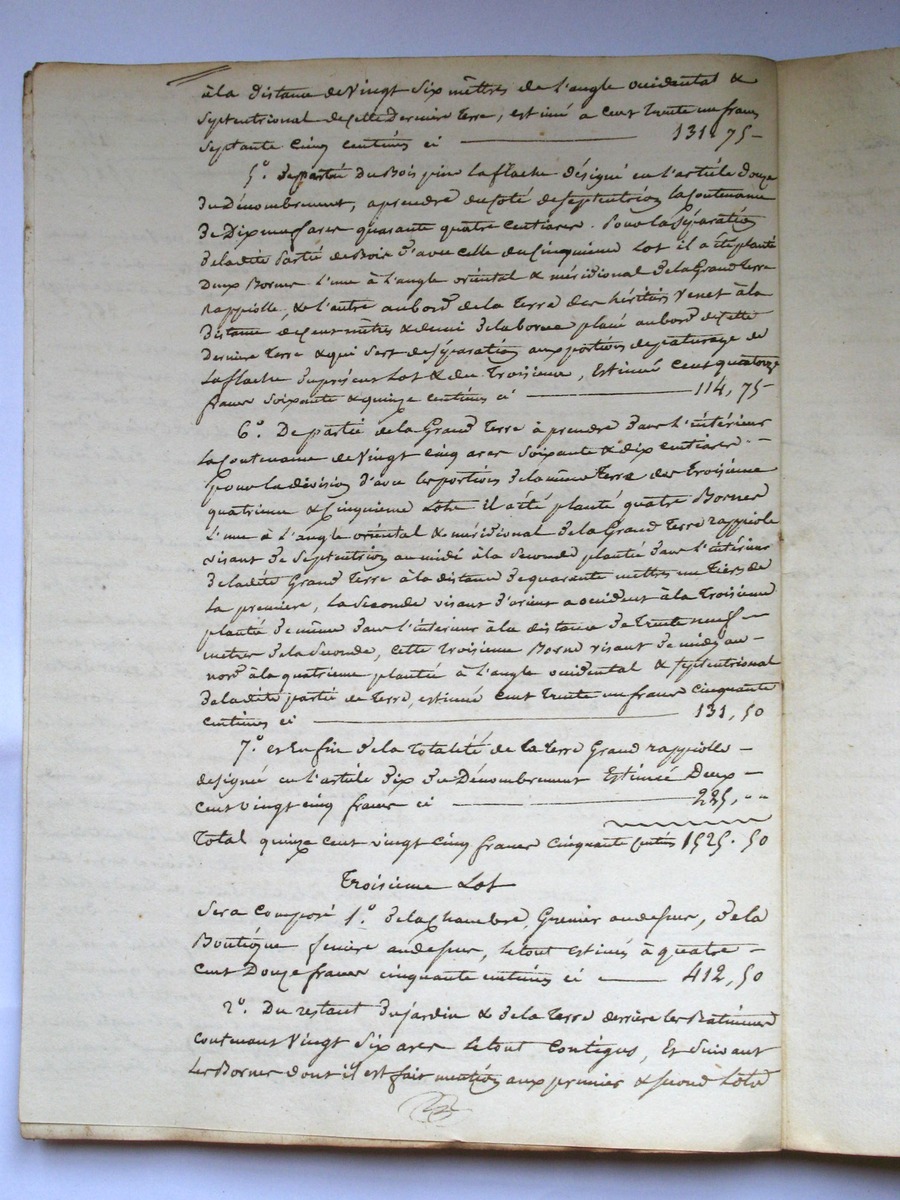 à la distance de Vingt Six mêttres de l'angle occidental &
Septentrional de cette Derniere Terre, estimé a cent trente un francs
Septante Cinq centimes ci 131,75
5.° De partie Du Bois pin La flache désigné en l'article Douze
Du Dénombrement, aprendre du coté de Septentrion la Contenance
De Dix neuf ares quarante quatre Centiares. Pour la Séparation
De ladite Partie de Bois d'avec celle du Cinquieme Lot il a été planté
Deux Bornes L'une à L'angle oriental & méridional de la Grand Terre
Rappiolle, & l'autre au bord de la Terre des héritiers Venet à la
Distance de Cent mêtres & demi de la borne placé au bord de cette
Derniere Terre & qui Sert de Séparation aux portions de paturage de
La flache Du présent Lot & du Troisieme, Estimé Cent quatorze
francs Soixante & quinze centimes ci 114,75
6.° De partie de la Grand Terre à prendre dans l'intérieur
La Contenance de Vingt Cinq ares Soixante & dix centiares.
Pour la division d'avec les portions de la même Terre des Troisieme
quatrieme & Cinquieme Lots il a été planté quatre Bornes
L'une à L'angle oriental & méridional de la Grand Terre rappiole
visant de Septentrion au midi à la Seconde plantée dans l'intérieur
De ladite Grand Terre à la distance de quarante mettres un tiers de
La premiere, La Seconde visant d'orient a occident à la Troisieme
plantée de même dans l'intérieur à la distance de Trente neuf
metres de la Seconde, cette Troisieme Borne visant de midy au
nord à la quatrieme plantée à L'angle occidental & Septentrional
de ladite partie de Terre, estimée Cent Trente un francs Cinquante
centimes ci 131,50
7.° et Enfin de la Totalité de la terre Grand rappiolle
designé en l'article dix du Dénombrement Estimée Deux
cent vingt cinq francs ci 225,"
Total quinze cent vingt cinq francs cinquante centimes 1525.50
Troisieme Lot
Sera Composé 1.° de la Chambre, Grenier au dessus, de la
Boutique feniere au dessus, le tout estimés à quatre
cent Douze francs cinquante centimes ci 412,50
2.° Du restant du jardin & de la Terre derriere les Bâtiments
contenant Vingt Six ares le tout Contigus, Et Suivant
Les Bornes dont il est fait mention aux premier & second Lots